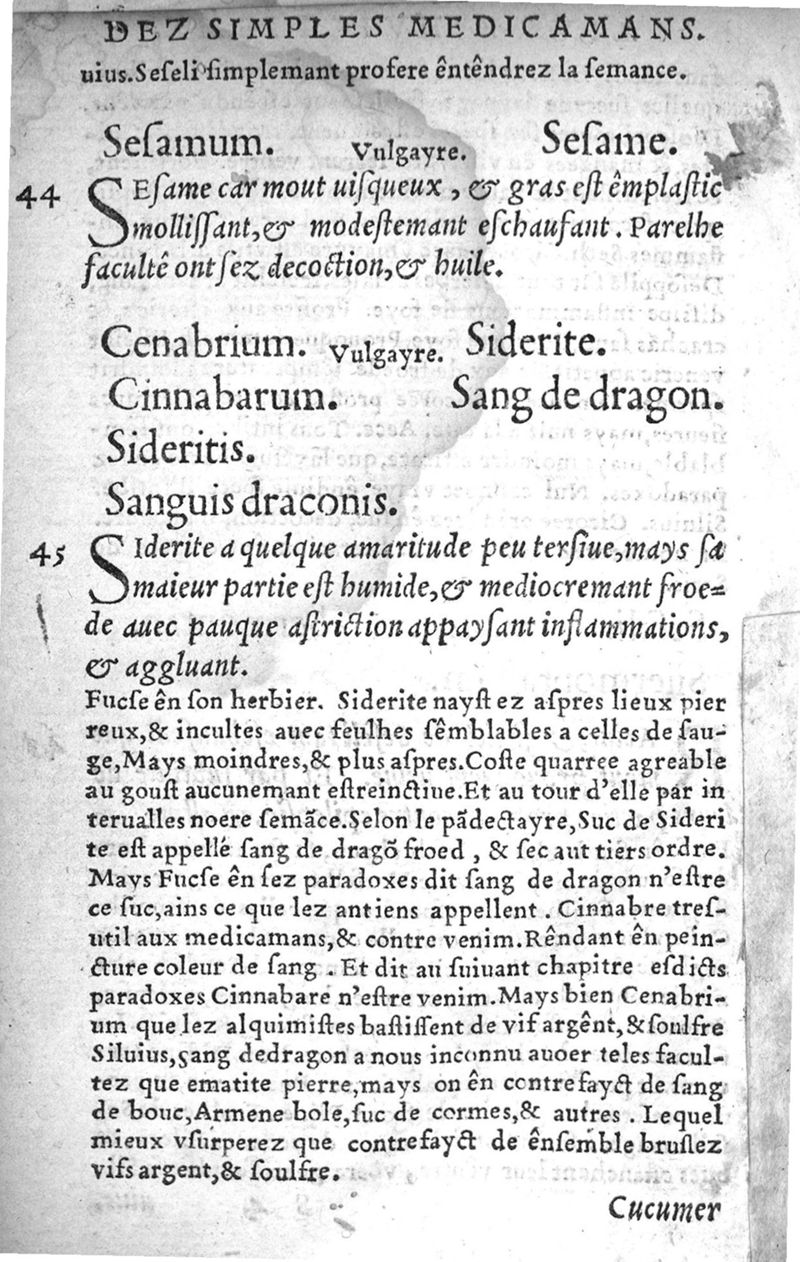 DEZ SIMPLES MEDICAMANS.
uius. Seſeli ſimplemant profere êntêndrez la ſemance.
Seſamum. Vulgayre. Seſame.
44 SEſame car mout uiſqueux, & gras eſt êmplaſtic
molliſſant, & modeſtemant eſchaufant. Parelhe
facultê ont ſez decoction, & huile.
Cenabrium. Vulgayre. Siderite.
Cinnabarum. Sang de dragon.
Sideritis.
Sanguis draconis.
45 SIderite a quelque amaritude peu terſiue, mays ſa
maieur partie eſt humide, & mediocremant froe=
de auec pauque aſtriction appayſant inflammations,
& aggluant.
Fucſe ên ſon herbier. Siderite nayſt ez aſpres lieux pier
reux, & incultes auec feulhes ſêmblables a celles de ſau-
ge, Mays moindres, & plus aſpres. Coſte quarree agreable
au gouſt aucunemant eſtreinctiue. Et au tour d'elle par in
terualles noere ſemãce. Selon le pãdectayre, Suc de Sideri
te eſt appellé ſang de dragõ froed, & ſec aut tiers ordre.
Mays Fucſe ên ſez paradoxes dit ſang de dragon n'eſtre
ce ſuc, ains ce que lez antiens appellent. Cinnabre treſ-
util aux medicamans, & contre venim. Rêndant ên pein-
cture coleur de ſang. Et dit au ſuiuant chapitre eſdicts
paradoxes Cinnabare n'eſtre venim. Mays bien Cenabri-
um que lez alquimiſtes baſtiſſent de vif argênt, & ſoulfre
Siluius, çang dedragon a nous inconnu auoer teles facul-
tez que ematite pierre, mays on ên contrefayct de ſang
de bouc, Armene bole, ſuc de cormes, & autres. Lequel
mieux vſurperez que contrefayct de ênſemble bruſlez
vifs argent, & ſoulfre.
Cucumer